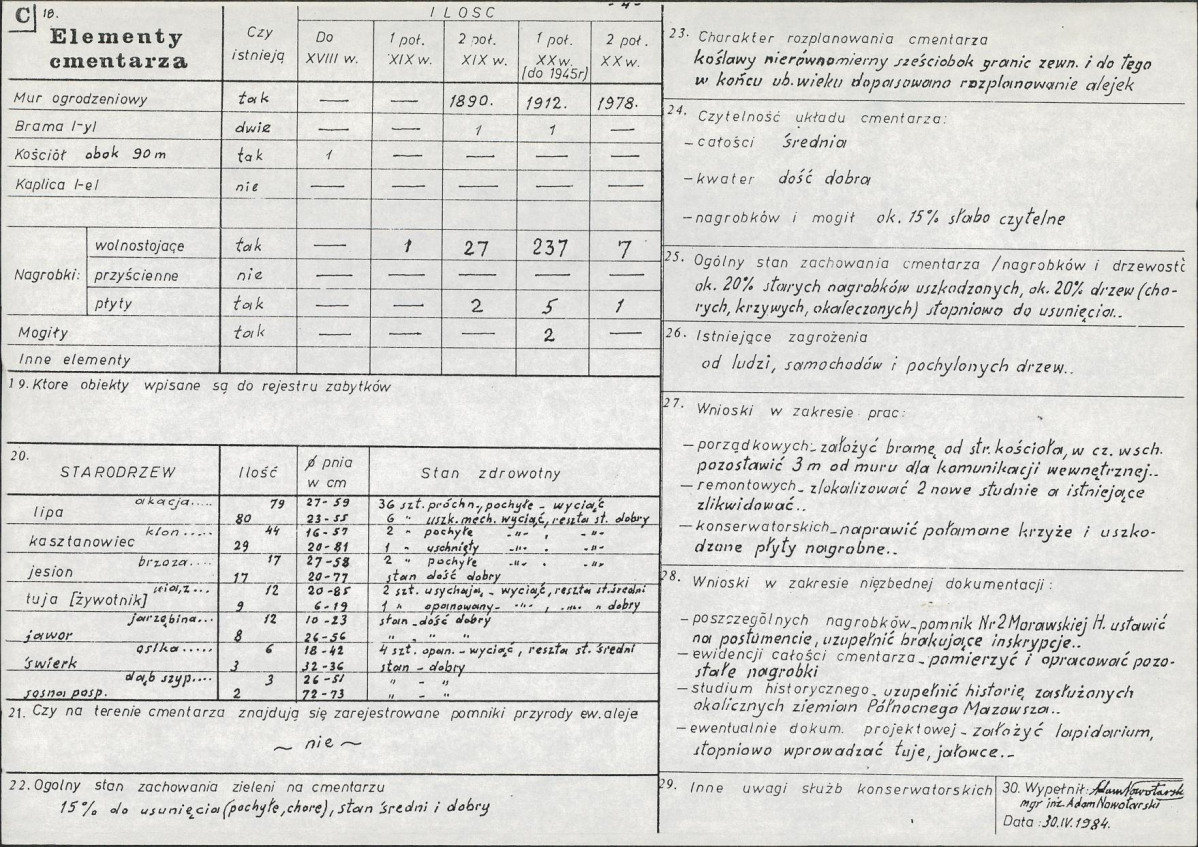 C 18.
Elementy cmentarza | Czy istnieją | ILOSC - 4 -
Do XVIII w. | 1 poł. XIX w. | 2 poł. XIX w. | 1 poł. XX w. (do 1945r) | 2 poł. XX w.
Mur ogrodzeniowy | tak | — | — | 1890. | 1912. | 1978.
Brama l-yl | dwie | — | — | 1 | 1 | —
Kościół obok 90 m | tak | 1 | — | — | — | —
Kaplica l-el | nie | — | — | — | — | —
Nagrobki: wolnostojące | tak | — | 1 | 27 | 237 | 7
przyścienne | nie | — | — | — | — | —
płyty | tak | — | — | 2 | 5 | 1
Mogiły | tak | — | — | — | 2 | —
Inne elementy
19. Ktore obiekty wpisane są do rejestru zabytków
20.
STARODRZEW | Ilość | ϕ pnia w cm | Stan zdrowotny
akacja..... | 79 | 27-59 | 36 szt. próchn., pochyłe - wyciąć
lipa | 80 | 23-55 | 6 " uszk. mech. wyciąć, reszta st. dobry
klon..... | 44 | 16-57 | 2 " pochyłe -"- , -"-
kasztanowiec | 29 | 20-81 | 1 " uschnięty -"- , -"-
brzoza.... | 17 | 27-58 | 2 " pochyłe -"- . -"-
jesion | 17 | 20-77 | stan dość dobry
wiąz... | 12 | 20-85 | 2 szt. usychają, - wyciąć, reszta st. średni
tuja [żywotnik] | 9 | 6-19 | 1 " opanowany - -"- , -"- " dobry
jarzębina... | 12 | 10-23 | stan - dość dobry
jawor | 8 | 26-56 | " - " - "
osika..... | 6 | 18-42 | 4 szt. opan. - wyciąć, reszta st. średni
świerk | 3 | 32-36 | stan - dobry
dąb szyp.... | 3 | 26-51 | " - "
sosna posp. | 2 | 72-73 | " - "
21. Czy na terenie cmentarza znajdują się zarejestrowane pomniki przyrody ew. aleje
~ nie ~
22. Ogolny stan zachowania zieleni na cmentarzu
15% do usunięcia (pochyłe, chore), stan średni i dobry
23. Charakter rozplanowania cmentarza
koślawy nierównomierny sześciobok granic zewn. i do tego
w końcu ub. wieku dopasowano rozplanowanie alejek
24. Czytelność układu cmentarza:
- całości średnia
- kwater dość dobra
- nagrobków i mogił ok. 15% słabo czytelne
25. Ogólny stan zachowania cmentarza /nagrobków i drzewość
ok. 20% starych nagrobków uszkodzonych, ok. 20% drzew (cho-
rych, krzywych, okaleczonych) stopniowo do usunięcia..
26. Istniejące zagrożenia
od ludzi, samochodów i pochylonych drzew..
27. Wnioski w zakresie prac:
- porządkowych - założyć bramę od str. kościoła, w cz. wsch.
pozostawić 3 m od muru dla komunikacji wewnętrznej..
- remontowych - zlokalizować 2 nowe studnie a istniejące
zlikwidować..
- konserwatorskich - naprawić połamane krzyże i uszko-
dzone płyty nagrobne..
28. Wnioski w zakresie niezbednej dokumentacji:
- poszczególnych nagrobków - pomnik Nr 2 Morawskiej H. ustawić
na postumencie, uzupełnić brakujące inskrypcje..
- ewidencji całości cmentarza - pomierzyć i opracować pozo-
stałe nagrobki
- studium historycznego - uzupełnić historię zasłużonych
okolicznych ziemian Północnego Mazowsza..
- ewentualnie dokum. projektowej - założyć lapidarium,
stopniowo wprowadzać tuje, jałowce..-
29. Inne uwagi służb konserwatorskich
30. Wypełnił: Adam Nowotarski
mgr inż. Adam Nowotarski
Data: 30.IV.1984.